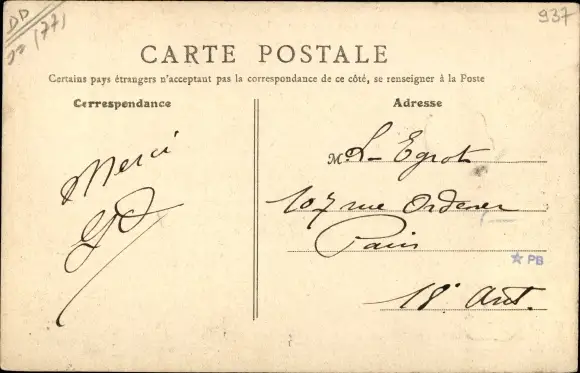 DD
(77)
937
CARTE POSTALE
Certains pays étrangers n'acceptant pas la correspondance de ce côté, se renseigner à la Poste
Correspondance
Adresse
Merci
M. L. Egrot
107 rue Ordener
Paris
18e Arrt.
PB